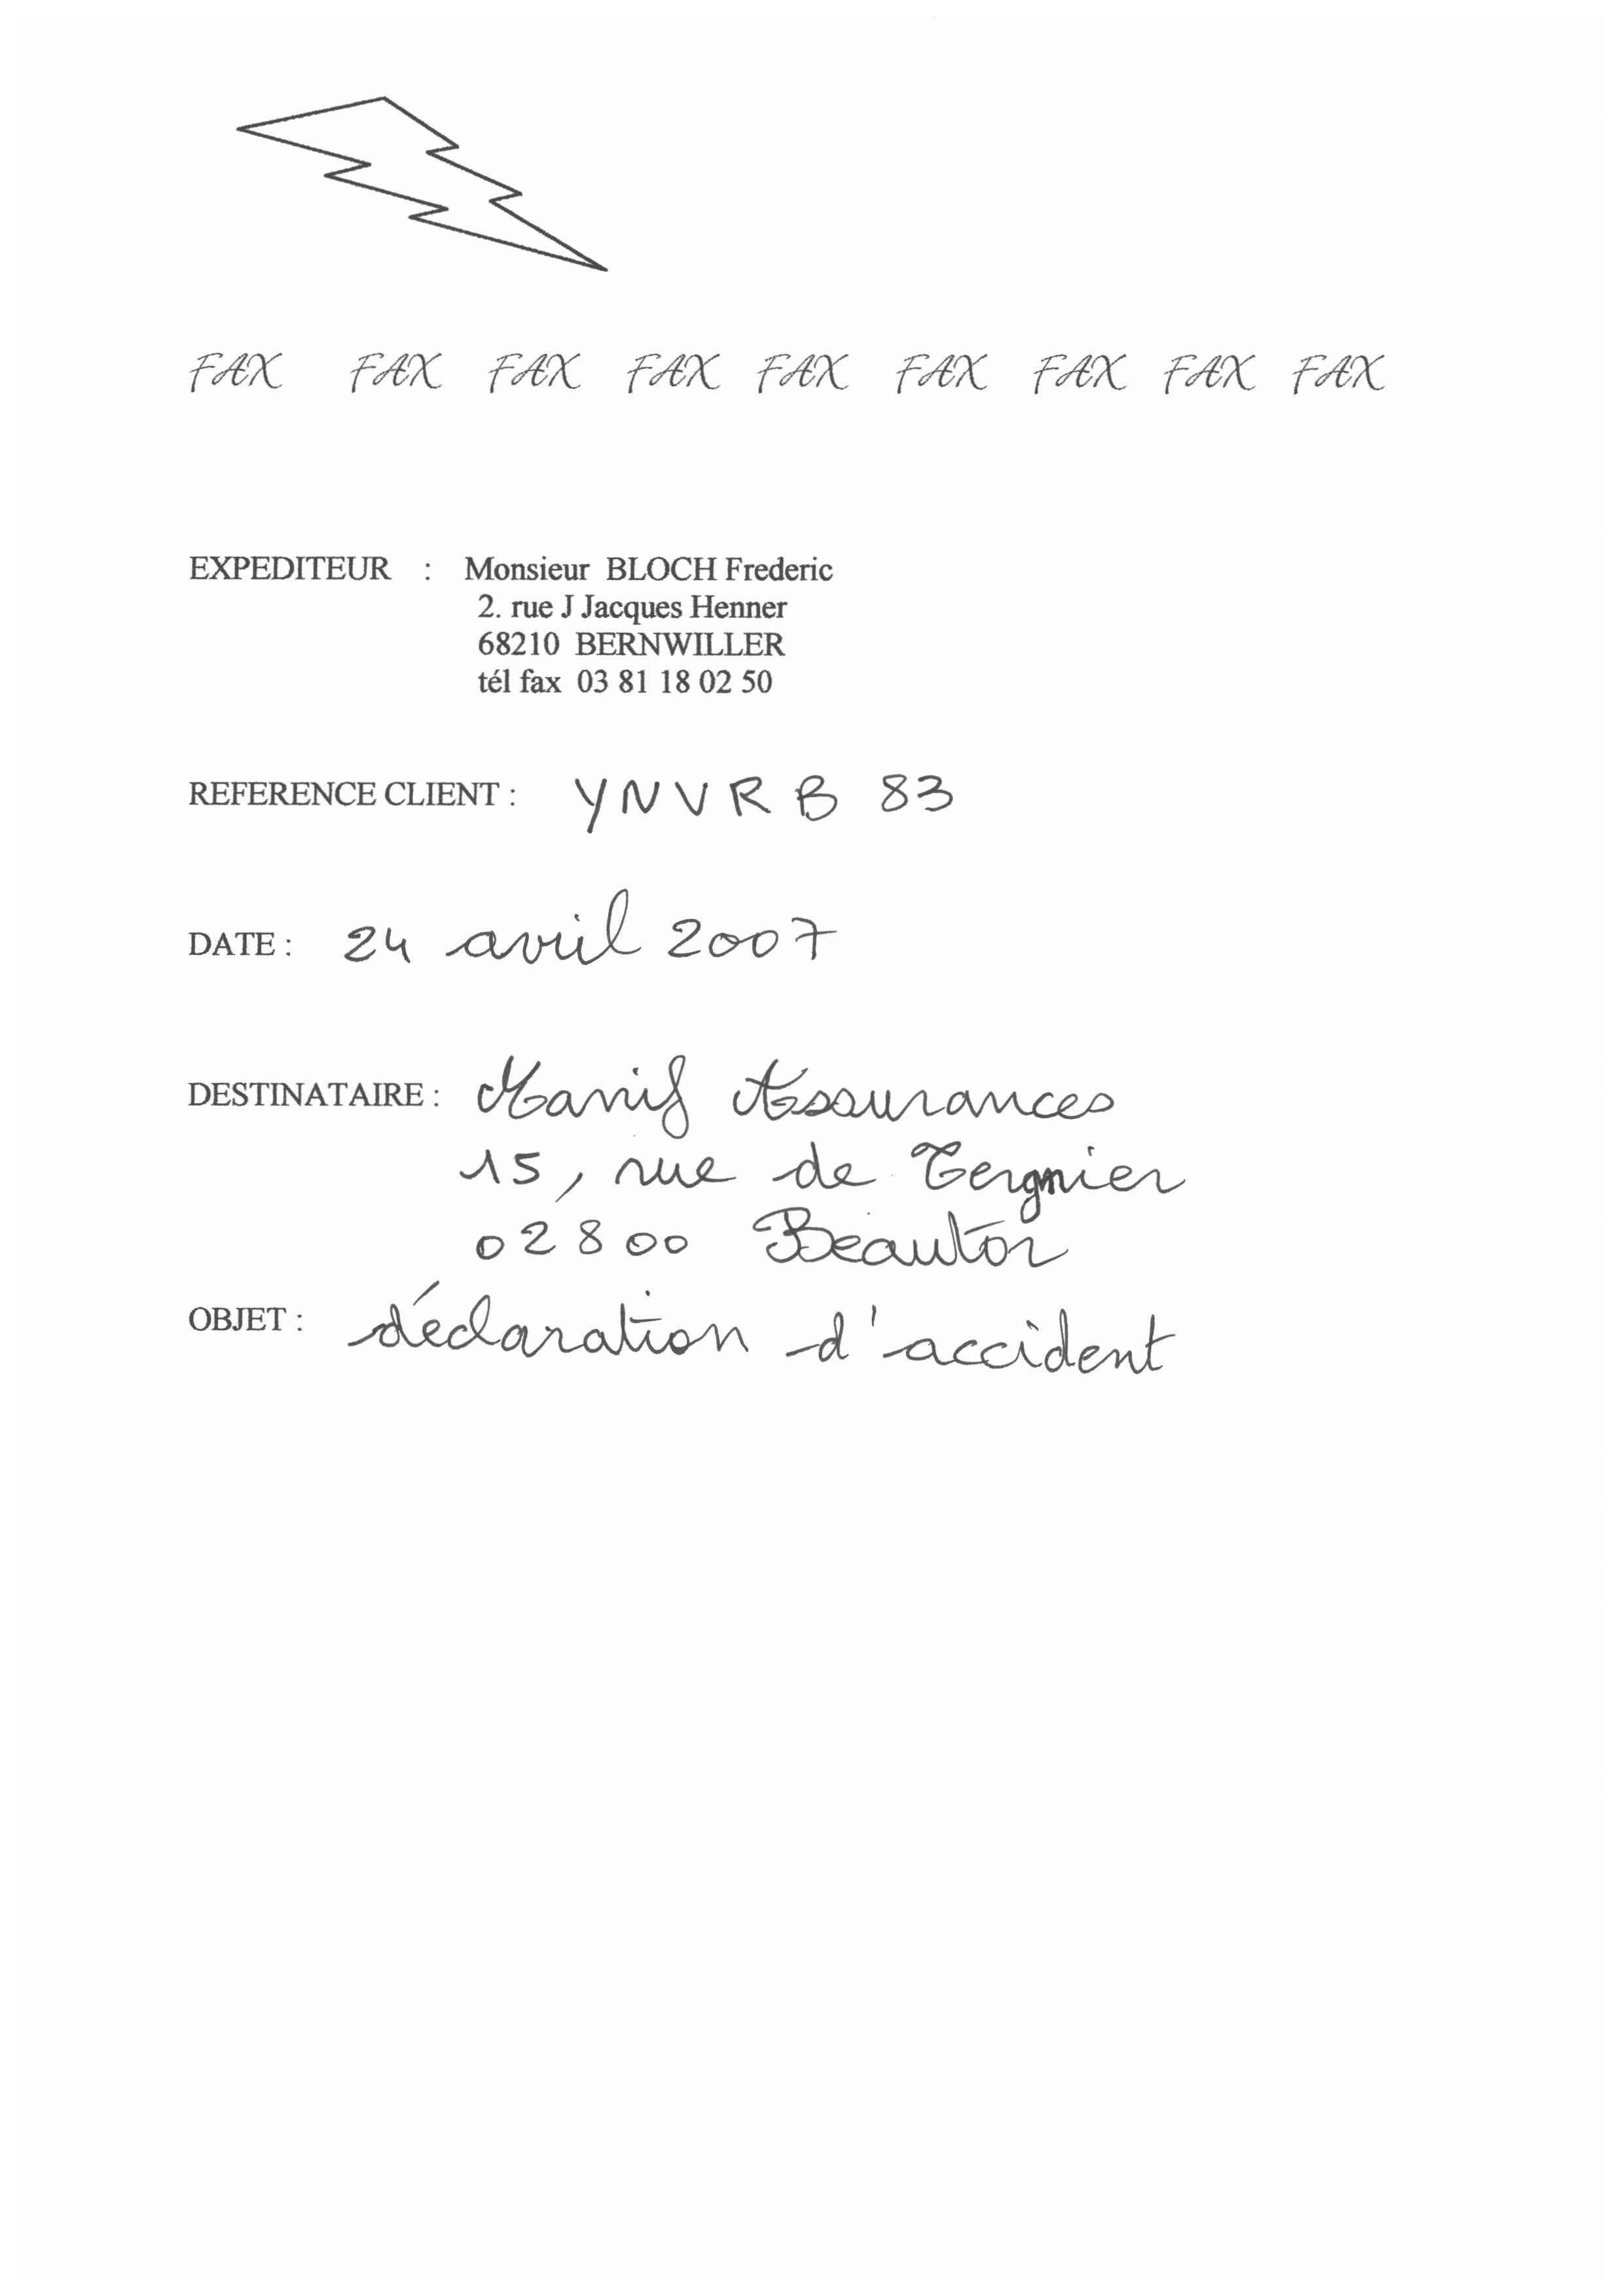 FAX FAX FAX FAX FAX FAX FAX FAX FAX
EXPEDITEUR : Monsieur BLOCH Frederic
2. rue J Jacques Henner
68210 BERNWILLER
tél fax 03 81 18 02 50
REFERENCE CLIENT : YNVRB 83
DATE : 24 avril 2007
DESTINATAIRE : Manif Assurances
15, rue de Tergnier
02800 Beautor
OBJET : déclaration d'accident